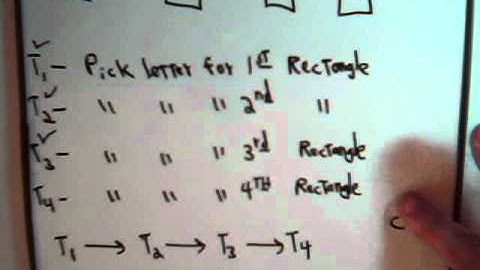 T1 - Pick letter for 1ST Rectangle
T2 - " " " 2nd "
T3 - " " " 3rd Rectangle
T4 - " " " 4TH Rectangle
T1 → T2 → T3 → T4
C